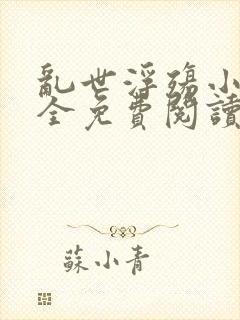 亂世浮殤小
全免費閱讀
蘇小青